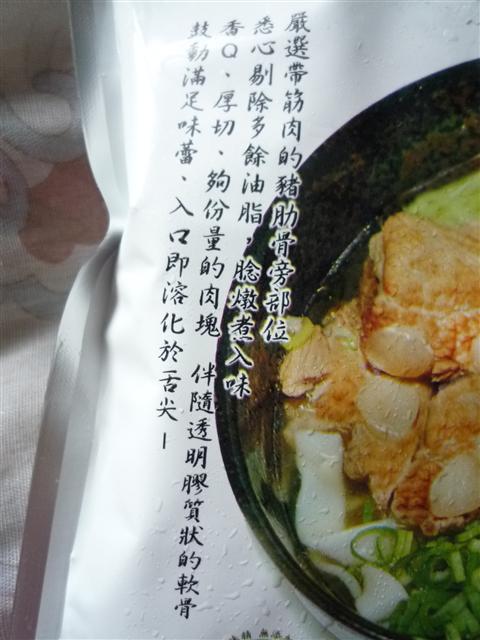 嚴選帶筋肉的豬肋骨旁部位
悉心剔除多餘油脂，腍燉煮入味
香Q、厚切、夠份量的肉塊 伴隨透明膠質狀的軟骨
鼓動滿足味蕾、入口即溶化於舌尖—